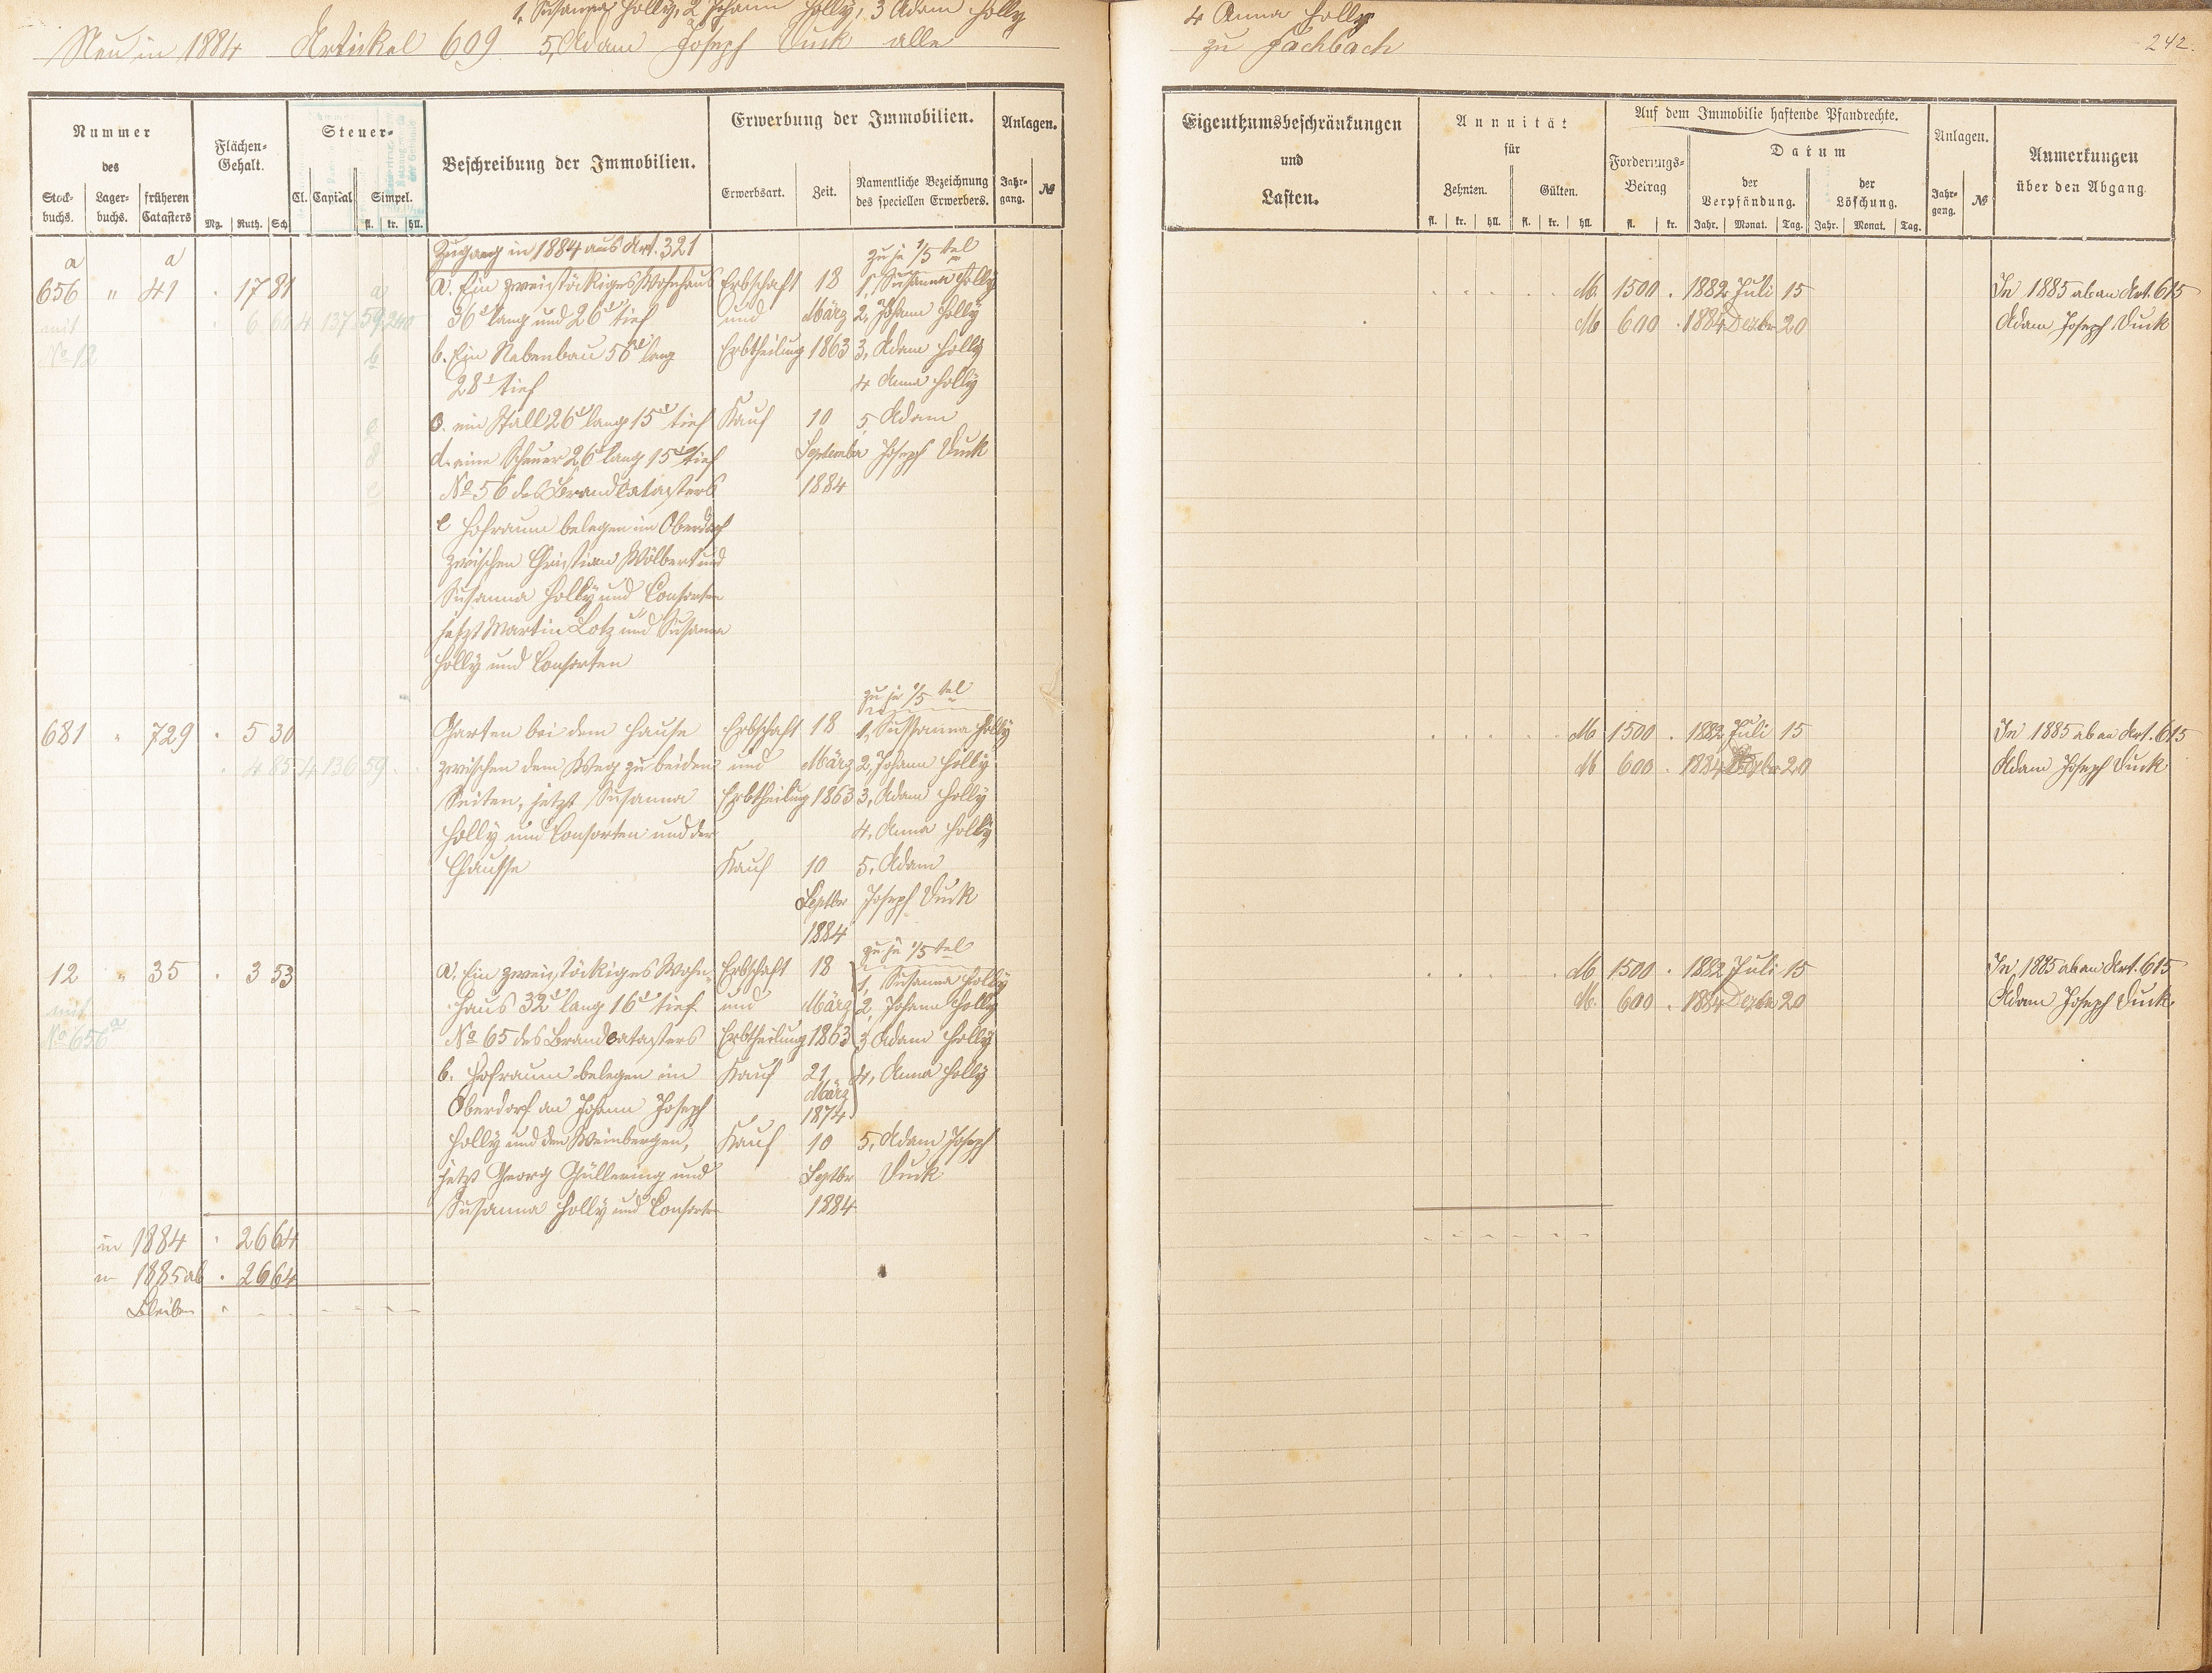 1, Susanna Holly, 2 Johann Holly, 3 Adam Holly
4 Anna Holly
Neu in 1884 Artickel 609 5, Adam Joseph Duck alle
zu Fachbach
242.
Nummer
des
Stock-buchs. Lager-buchs. früheren Catasters
Flächen-Gehalt.
Mg. Ruth. Sch
Steuer-
Cl. Capital Simpel.
fl. kr. hll.
Beschreibung der Immobilien.
Erwerbung der Immobilien.
Erwerbsart. Zeit. Namentliche Bezeichnung des speciellen Erwerbers.
Anlagen.
Jahr-gang. №
Eigenthumsbeschränkungen
und
Lasten.
Annuität
für
Zehnten. Gülten.
fl. kr. hll. fl. kr. hll.
Auf dem Immobilie haftende Pfandrechte.
Forderungs-Betrag
fl. kr.
Datum
der Verpfändung. der Löschung.
Jahr. Monat. Tag. Jahr. Monat. Tag.
Anlagen.
Jahr-gang. №
Anmerkungen
über den Abgang
Zugang in 1884 aus Art. 321
zu je 1/5 tel
a a
656 " 41 . 17 81 a. Ein zweistöckiges Wohnhaus Erbschaft 18 1, Susanna Holly
mit 6 60 4 137 59 240 36' lang und 26' tief und März 2, Johann Holly
No 12 b. Ein Nebenbau 56' lang Erbtheilung 1863 3, Adam Holly
28' tief 4 Anna Holly
c. ein Stall 26' lang 15' tief Kauf 10 5, Adam
d. eine Scheuer 26' lang 15' tief September Joseph Duck
No 56 des Brandcatasters 1884
e Hofraum belegen im Oberdorf
zwischen Christian Wölbert und
Susanna Holly und Consorten
jetzt Martin Lotz und Susanna
Holly und Consorten
M 1500 . 1882 Juli 15 In 1885 ab an Art. 615
M 600 . 1884 Dezbr 20 Adam Joseph Duck
zu je 1/5 tel
681 " 729 . 5 30 Garten bei dem Hause Erbschaft 18 1, Sussanna Holly
. 4 85 4 136 59 zwischen dem Weg zu beiden und März 2, Johann Holly
Seiten, jetzt Susanna Erbtheilung 1863 3, Adam Holly
Holly und Consorten und der 4, Anna Holly
Chausse Kauf 10 5, Adam
Septbr Joseph Duck
1884
M 1500 . 1882 Juli 15 In 1885 ab an Art. 615
M 600 . 1884 Dezbr 20 Adam Joseph Duck
zu je 1/5 tel
12 " 35 . 3 53 a. Ein zweistöckiges Wohn- Erbschaft 18 1, Susanna Holly
mit haus 32' lang 16' tief und März 2, Johann Holly
No 656 a No 65 des Brandcatasters Erbtheilung 1863 3 Adam Holly
b. Hofraum belegen im Kauf 21 4, Anna Holly
März
Oberdorf an Johann Joseph 1874
Holly und den Weinbergen, Kauf 10 5, Adam Joseph
jetzt Georg Güllering und Septbr Duck
Susanna Holly und Consorten 1884
M 1500 . 1882 Juli 15 In 1885 ab an Art. 615
M. 600 . 1884 Dezbr 20 Adam Joseph Duck.
in 1884 . 26 64
in 1885 ab . 26 64
Bleiben